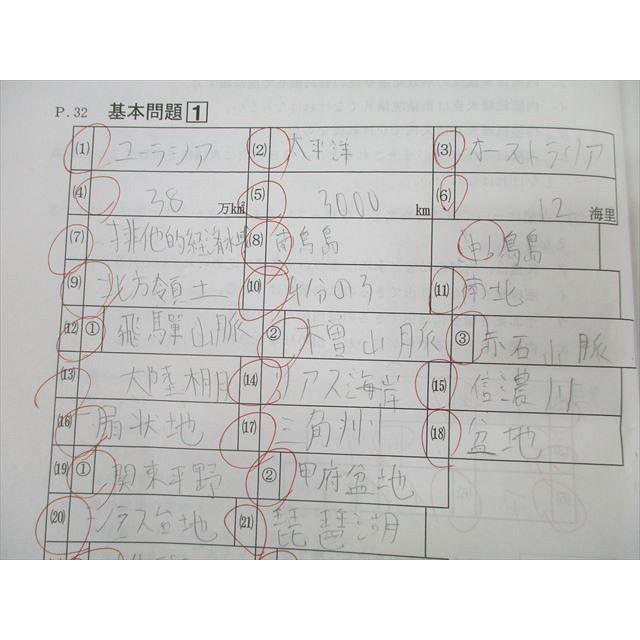 P.32 基本問題 1
(1) ユーラシア (2) 太平洋 (3) オーストラリア
(4) 38 万km² (5) 3000 km (6) 12 海里
(7) 排他的経済水域 (8) 南鳥島 鳥島
(9) 北方領土 (10) 4分の3 (11) 南北
(12) ① 飛騨山脈 ② 木曽山脈 ③ 赤石山脈
(13) 大陸棚 (14) リアス海岸 (15) 信濃川
(16) 扇状地 (17) 三角州 (18) 盆地
(19) ① 関東平野 ② 甲府盆地
(20) シラス台地 (21) 琵琶湖